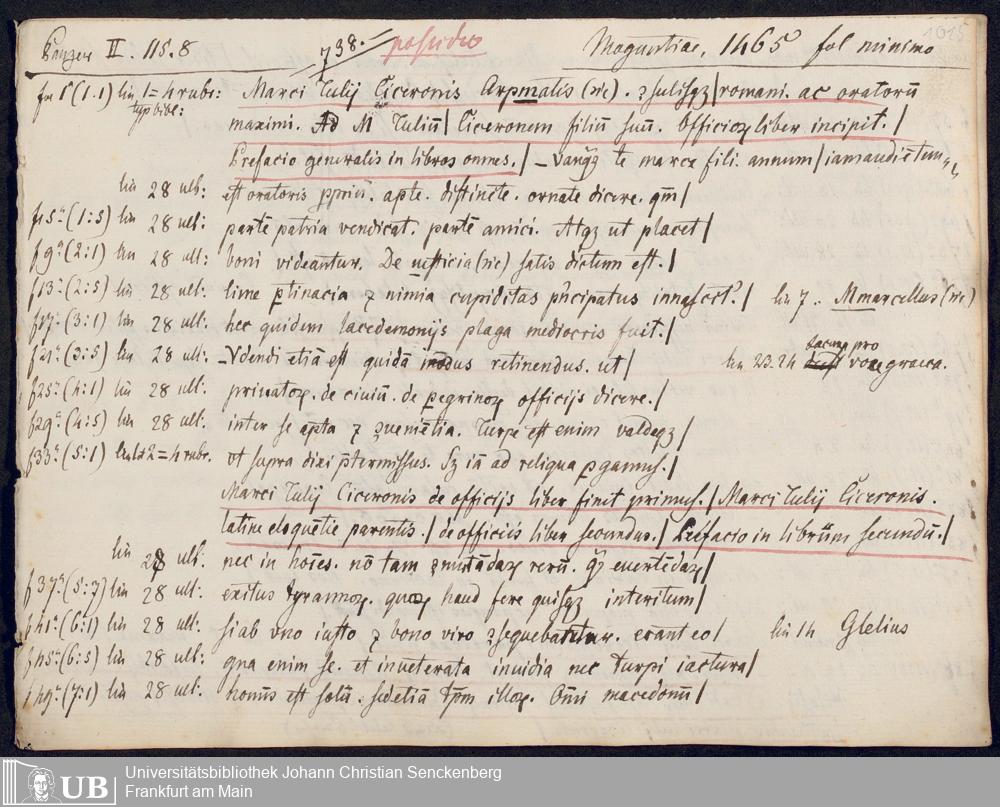 Panzer II. 115.8 738. possideo Moguntiae, 1465 fol minimo 1015
f 1ª (1.1) lin 1=4 rubr: Marci Tulij Ciceronis Arpmatis (sic). ꝯsulisqꝫ | romani. ac oratorū
typ bibl: maximi. Ad M Tuliū | Ciceronem filiū suū. Officioꝝ liber incipit. /
Prefacio generalis in libros omnes. / _ vanqꝫ te marce fili. annum | iam audiētem
lin 28 ult: est oratoris ꝓpriū. apte. distincte. ornate dicere. qm̄ |
f 5ª (1:5) lin 28 ult: partē patria vendicat. partē amici. Atqꝫ ut placet |
f 9ª (2:1) lin 28 ult: boni videantur. De iusticia (sic) satis dictum est. |
f 13ª (2:5) lin 28 ult: lime ꝑtinacia ⁊ nimia cupiditas pͥncipatus innascet². | lin 7.. Mmarcellus (sic)
f 17ª (3:1) lin 28 ult: hec quidem lacedemonijs plaga mediocris fuit: /
f 21ª (3:5) lin 28 ult: _Vdendi etiā est quidā modus retinendus. ut / lin 23.24 lacuna pro voce graeca.
f 25ª (4:1) lin 28 ult: priuatoꝝ. de ciuiū. de ꝑegrinoꝝ officijs dicere. /
f 29ª (4:5) lin 28 ult: inter se apta ⁊ ꝯueniētia. Turpe est enim valdeqꝫ /
f 33ª (5:1) lin 2=4 rubr. vt supra dixi p̄termissus. Sꝫ iā ad reliqua ꝑgamus. /
Marci Tulij Ciceronis de officijs liber finit primus. / Marci Tulij Ciceronis.
latine eloquētie parentis. / de officiis liber secundus. / Prefacio in librum secundū. /
lin 28 ult: nec in hoīes. nō tam ꝯmutādaꝝ rerū. qꝫ euertēdaꝝ /
f 37ª (5:7) lin 28 ult: exitus tyrannoꝝ. quoꝝ haud fere quisqꝫ interitum /
f 41ª (6:1) lin 28 ult: si ab vno iusto ⁊ bono viro ꝯsequebatur. erant eo / lin 14 Glelius
f 45ª (6:5) lin 28 ult: gna enim se. et inueterata inuidia nec turpi iactura /
f 49ª (7:1) lin 28 ult: homīs est solū. sed etiā tꝑm illoꝝ. Om̄i macedonū /
UB Universitätsbibliothek Johann Christian Senckenberg
Frankfurt am Main